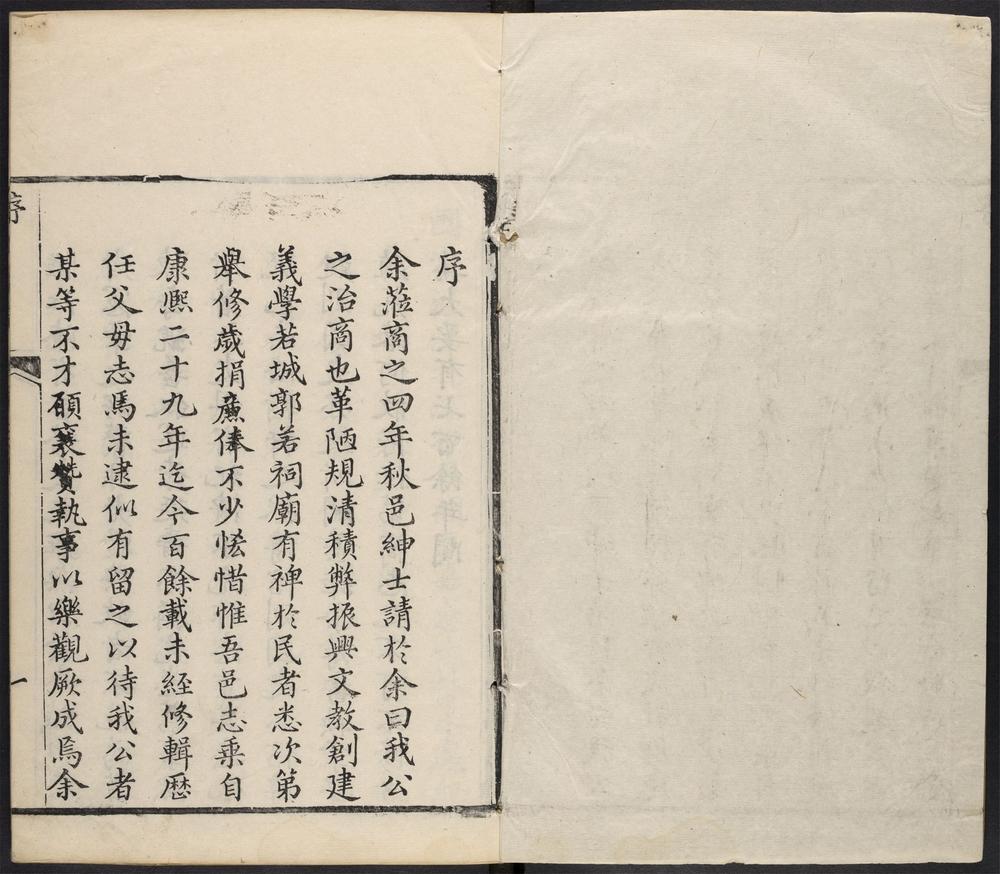 序
余蒞商之四年秋邑紳士請於余曰我公
之治商也革陋規清積弊振興文教創建
義學若城郭若祠廟有裨於民者悉次第
舉修歲捐廉俸不少恡惜惟吾邑志乗自
康熈二十九年迄今百餘載未經修輯歴
任父毋志焉未逮似有留之以待我公者
某等不才願襄贊執事以樂觀厥成焉余
序
一